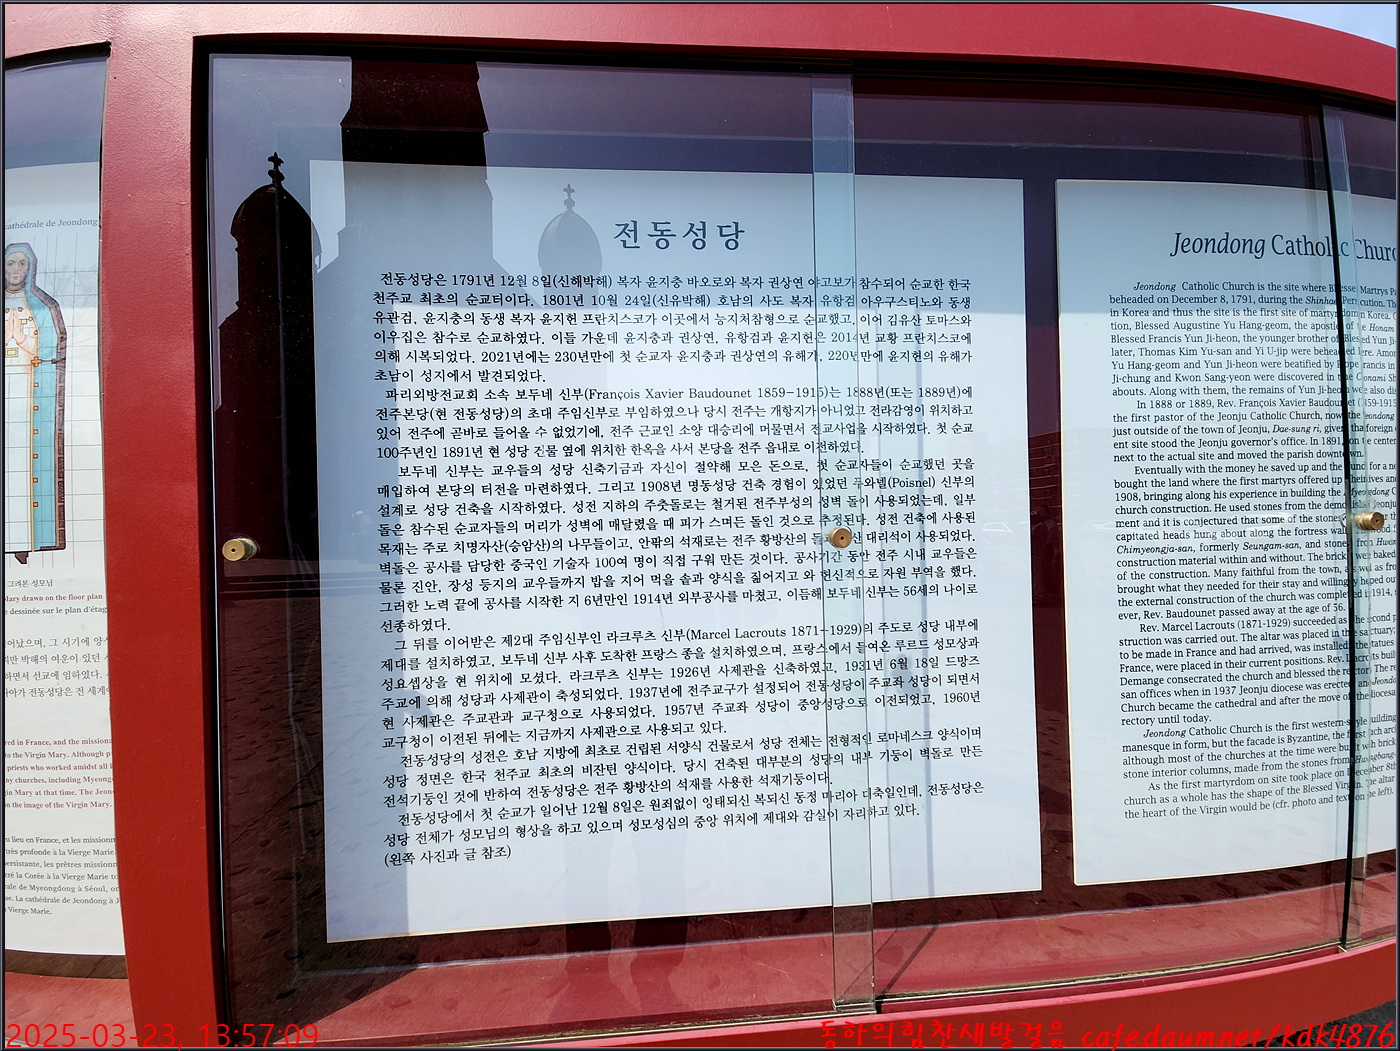 cathédrale de Jeondong
그려본 성모님
dessinée sur le plan d'étag
전동성당
전동성당은 1791년 12월 8일(신해박해) 복자 윤지충 바오로와 복자 권상연 야고보가 참수되어 순교한 한국
천주교 최초의 순교터이다. 1801년 10월 24일(신유박해) 호남의 사도 복자 유항검 아우구스티노와 동생
유관검, 윤지충의 동생 복자 윤지헌 프란치스코가 이곳에서 능지처참형으로 순교했고, 이어 김유산 토마스와
이우집은 참수로 순교하였다. 이들 가운데 윤지충과 권상연, 유항검과 윤지헌은 2014년 교황 프란치스코에
의해 시복되었다. 2021년에는 230년만에 첫 순교자 윤지충과 권상연의 유해가, 220년만에 윤지헌의 유해가
초남이 성지에서 발견되었다.
파리외방전교회 소속 보두네 신부(François Xavier Baudounet 1859-1915)는 1888년(또는 1889년)에
전주본당(현 전동성당)의 초대 주임신부로 부임하였으나 당시 전주는 개항지가 아니었고 전라감영이 위치하고
있어 전주에 곧바로 들어올 수 없었기에, 전주 근교인 소양 대승리에 머물면서 전교사업을 시작하였다. 첫 순교
100주년인 1891년 현 성당 건물 옆에 위치한 한옥을 사서 본당을 전주 읍내로 이전하였다.
보두네 신부는 교우들의 성당 신축기금과 자신이 절약해 모은 돈으로, 첫 순교자들이 순교했던 곳을
매입하여 본당의 터전을 마련하였다. 그리고 1908년 명동성당 건축 경험이 있었던 푸와넬(Poisnel) 신부의
설계로 성당 건축을 시작하였다. 성전 지하의 주춧돌로는 철거된 전주부성의 성벽 돌이 사용되었는데, 일부
돌은 참수된 순교자들의 머리가 성벽에 매달렸을 때 피가 스며든 돌인 것으로 추정된다. 성전 건축에 사용된
목재는 주로 치명자산(승암산)의 나무들이고, 안팎의 석재로는 전주 황방산의 돌과 대리석이 사용되었다.
벽돌은 공사를 담당한 중국인 기술자 100여 명이 직접 구워 만든 것이다. 공사기간 동안 전주 시내 교우들은
물론 진안, 장성 등지의 교우들까지 밥을 지어 먹을 솥과 양식을 짊어지고 와 헌신적으로 자원 부역을 했다.
그러한 노력 끝에 공사를 시작한 지 6년만인 1914년 외부공사를 마쳤고, 이듬해 보두네 신부는 56세의 나이로
선종하였다.
그 뒤를 이어받은 제2대 주임신부인 라크루츠 신부(Marcel Lacrouts 1871-1929)의 주도로 성당 내부에
제대를 설치하였고, 보두네 신부 사후 도착한 프랑스 종을 설치하였으며, 프랑스에서 들여온 루르드 성모상과
성요셉상을 현 위치에 모셨다. 라크루츠 신부는 1926년 사제관을 신축하였고, 1931년 6월 18일 드망즈
주교에 의해 성당과 사제관이 축성되었다. 1937년에 전주교구가 설정되어 전동성당이 주교좌 성당이 되면서
현 사제관은 주교관과 교구청으로 사용되었다. 1957년 주교좌 성당이 중앙성당으로 이전되었고, 1960년
교구청이 이전된 뒤에는 지금까지 사제관으로 사용되고 있다.
전동성당의 성전은 호남 지방에 최초로 건립된 서양식 건물로서 성당 전체는 전형적인 로마네스크 양식이며
성당 정면은 한국 천주교 최초의 비잔틴 양식이다. 당시 건축된 대부분의 성당의 내부 기둥이 벽돌로 만든
전석기둥인 것에 반하여 전동성당은 전주 황방산의 석재를 사용한 석재기둥이다.
전동성당에서 첫 순교가 일어난 12월 8일은 원죄없이 잉태되신 복되신 동정 마리아 대축일인데, 전동성당은
성당 전체가 성모님의 형상을 하고 있으며 성모성심의 중앙 위치에 제대와 감실이 자리하고 있다.
(왼쪽 사진과 글 참조)
Jeondong Catholic Churc
Jeondong Catholic Church is the site where Blessed Martyrs
beheaded on December 8, 1791, during the Shinhae Persecution.
in Korea and thus the site is the first site of martyrdom in Korea.
tion, Blessed Augustine Yu Hang-geom, the apostle of the Honam
Blessed Francis Yun Ji-heon, the younger brother of Blessed Yun Ji-
later, Thomas Kim Yu-san and Yi U-jip were beheaded here.
Yu Hang-geom and Yun Ji-heon were beatified by Pope Francis in
Ji-chung and Kwon Sang-yeon were discovered in the
abouts. Along with them, the remains of Yun Ji-heon were also
In 1888 or 1889, Rev. François Xavier Baudounet
the first pastor of the Jeonju Catholic Church, now the Jeondong
just outside of the town of Jeonju, Dae-sung ri, given that foreign
ent site stood the Jeonju governor's office. In 1891, on the
next to the actual site and moved the parish downtown.
Eventually with the money he saved up and the fund for a
bought the land where the first martyrs offered up their lives and
1908, bringing along his experience in building the Myeongdong
church construction. He used stones from the demolished Jeonju
ment and it is conjectured that some of the stones
capitated heads hung about along the fortress wall.
Chimyeongja-san, formerly Seungam-san, and stones from
construction material within and without. The bricks were baked
of the construction. Many faithful from the town, as well as
brought what they needed for their stay and willingly helped
the external construction of the church was completed in 1914,
ever, Rev. Baudounet passed away at the age of 56.
Rev. Marcel Lacrouts (1871-1929) succeeded as the second
struction was carried out. The altar was placed in the sanctuary;
to be made in France and had arrived, was installed; the statues
France, were placed in their current positions. Rev. Lacrouts
Demange consecrated the church and blessed the rectory. The
san offices when in 1937 Jeonju diocese was erected and
Church became the cathedral and after the move of the diocesan
rectory until today.
Jeondong Catholic Church is the first western-style building
manesque in form, but the facade is Byzantine, the first
although most of the churches at the time were built with
stone interior columns, made from the stones from
As the first martyrdom on site took place on December 8th
church as a whole has the shape of the Blessed Virgin. The altar
the heart of the Virgin would be (cfr. photo and text on the left).
2025-03-23, 13:57:09
동하의힘찬새발걸음 cafe.daum.net/kdk4876